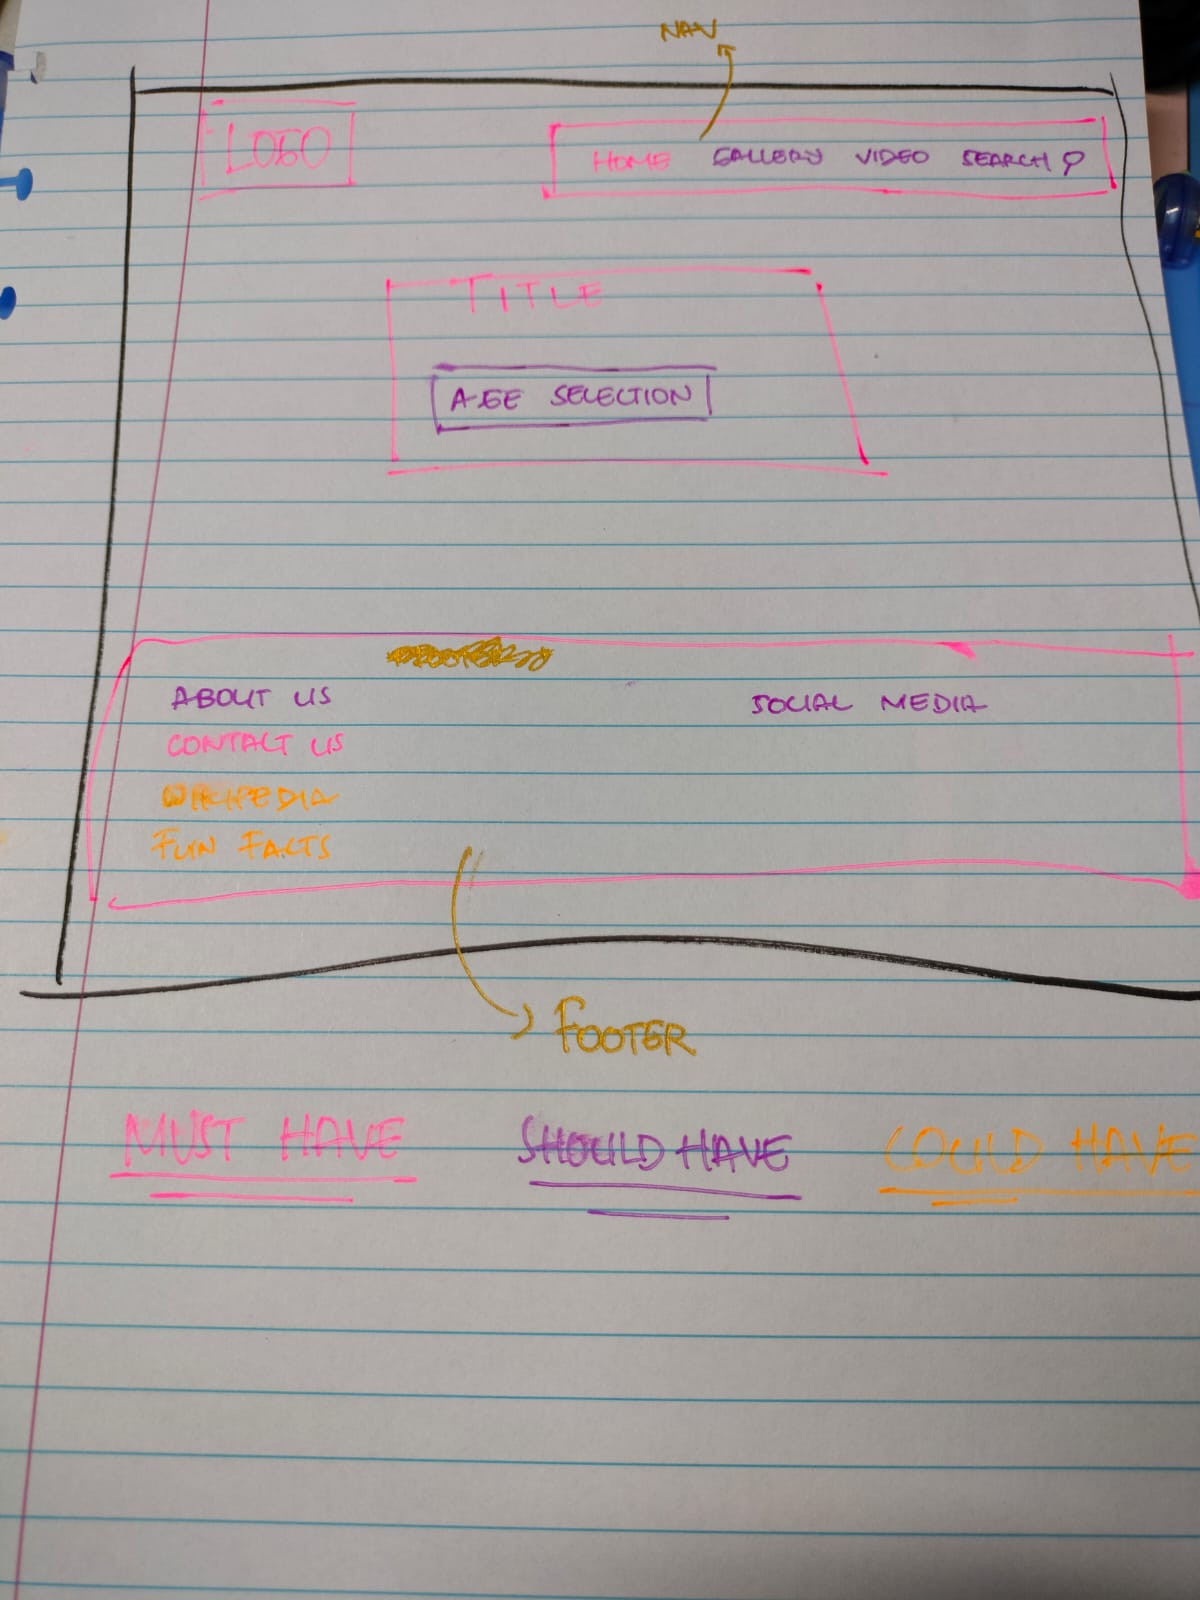 NAV
LOGO
HOME GALLERY VIDEO SEARCH
TITLE
AGE SELECTION
ABOUT US SOCIAL MEDIA
CONTACT US
WIKIPEDIA
FUN FACTS
FOOTER
MUST HAVE SHOULD HAVE COULD HAVE